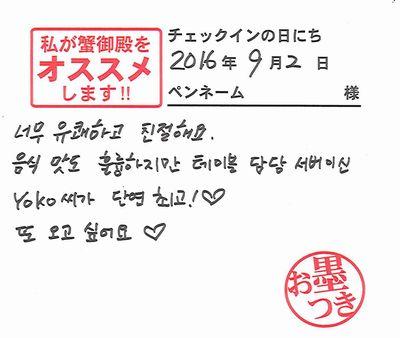 私が蟹御殿を
オススメ
します!!
チェックインの日にち
2016年 9月2日
ペンネーム 様
너무 유쾌하고 친절해요.
음식 맛도 훌륭하지만 테이블 담당 서버이신
Yoko 씨가 단연 최고!♡
또 오고 싶어요 ♡
お墨つき